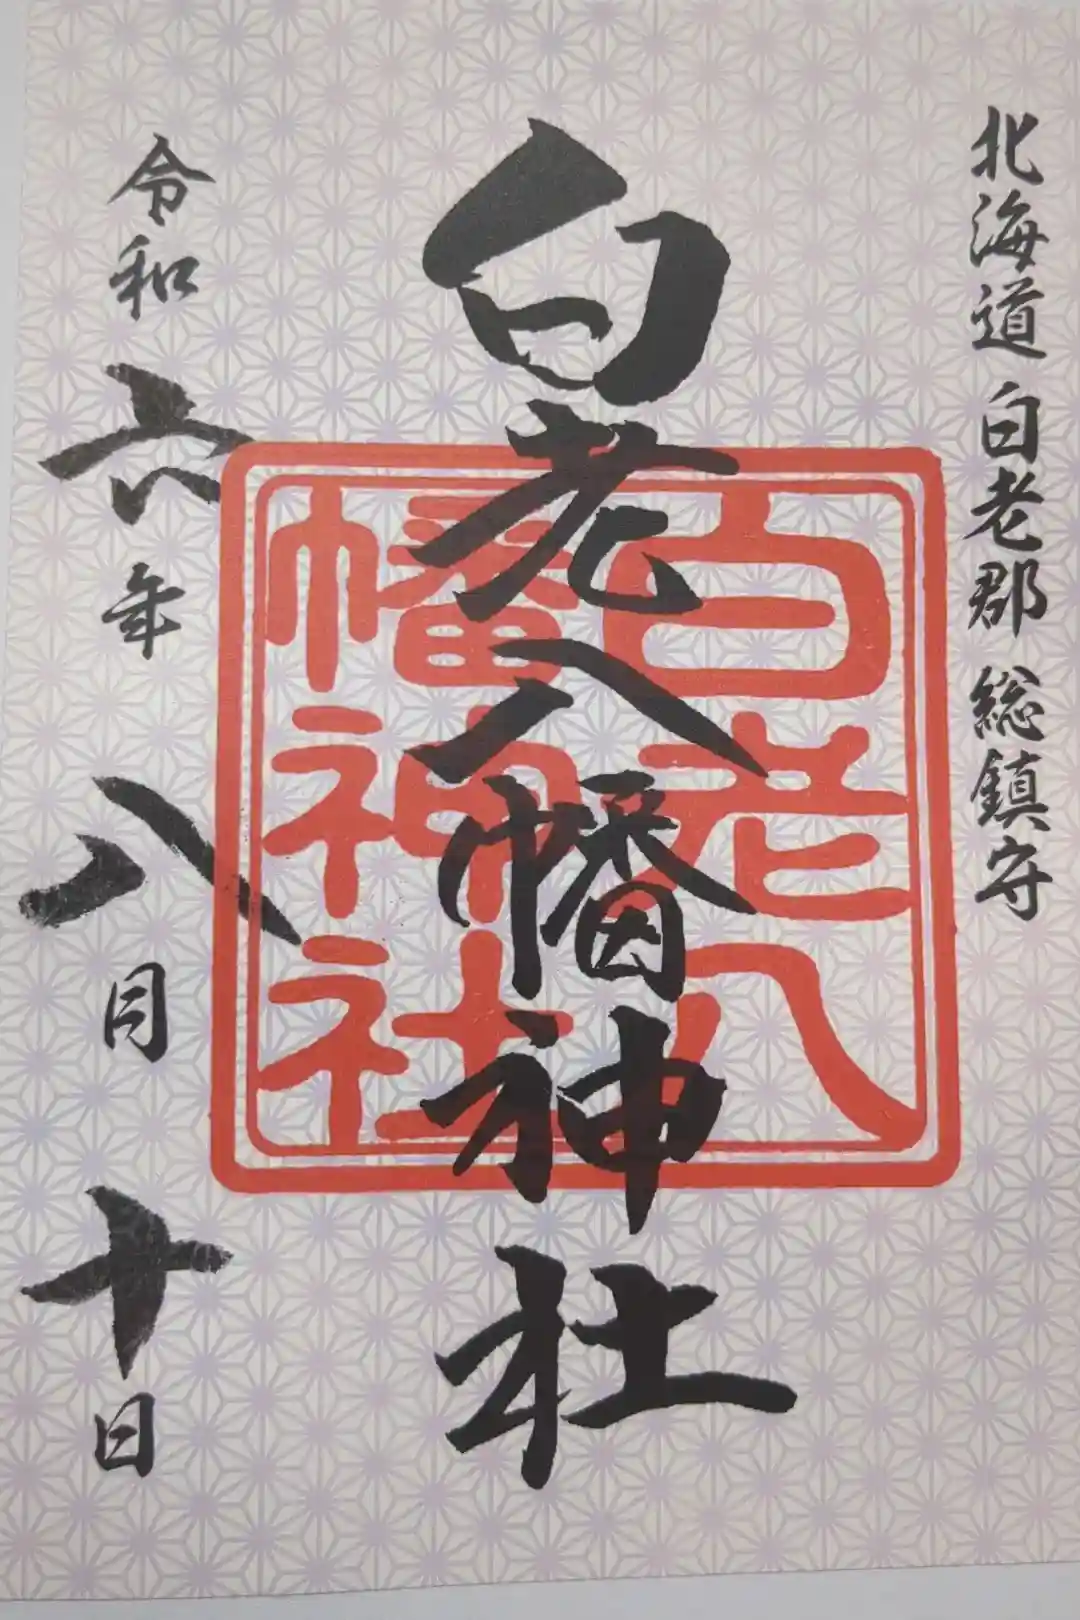 北海道 白老郡 総鎮守
白老八幡神社
白老八
幡神社
令和六年八月十日